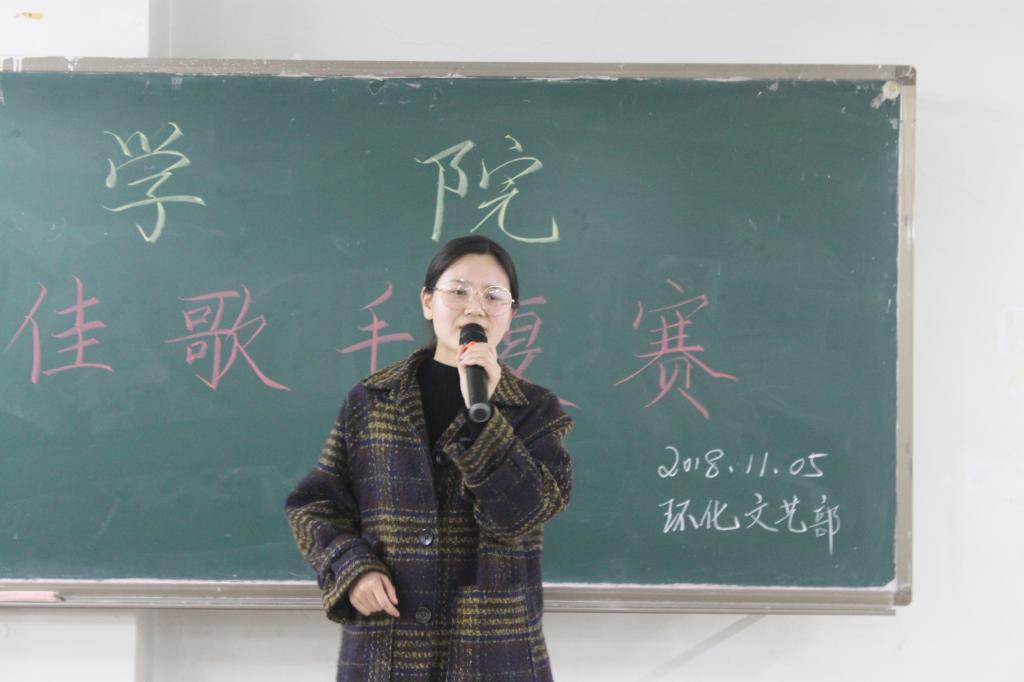 学院
佳歌手复赛
2018.11.05
环化文艺部